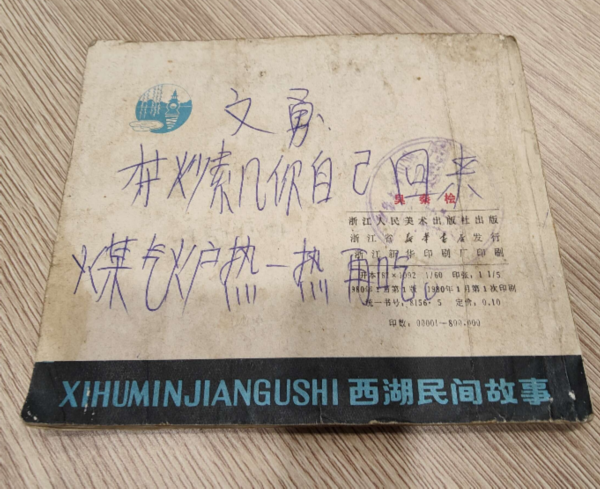 文勇
炒素几你自己回来
臭秦桧
浙江人民美术出版社出版
浙江省新华书店发行
浙江新华印刷厂印刷
煤气炉热一热再吃
开本787×1092 1/60 印张:1 1/5
1980年1月第1版 1980年1月第1次印刷
统一书号:8156·5 定价:0.10
印数:00001—800,000
XIHUMINJIANGUSHI 西湖民间故事